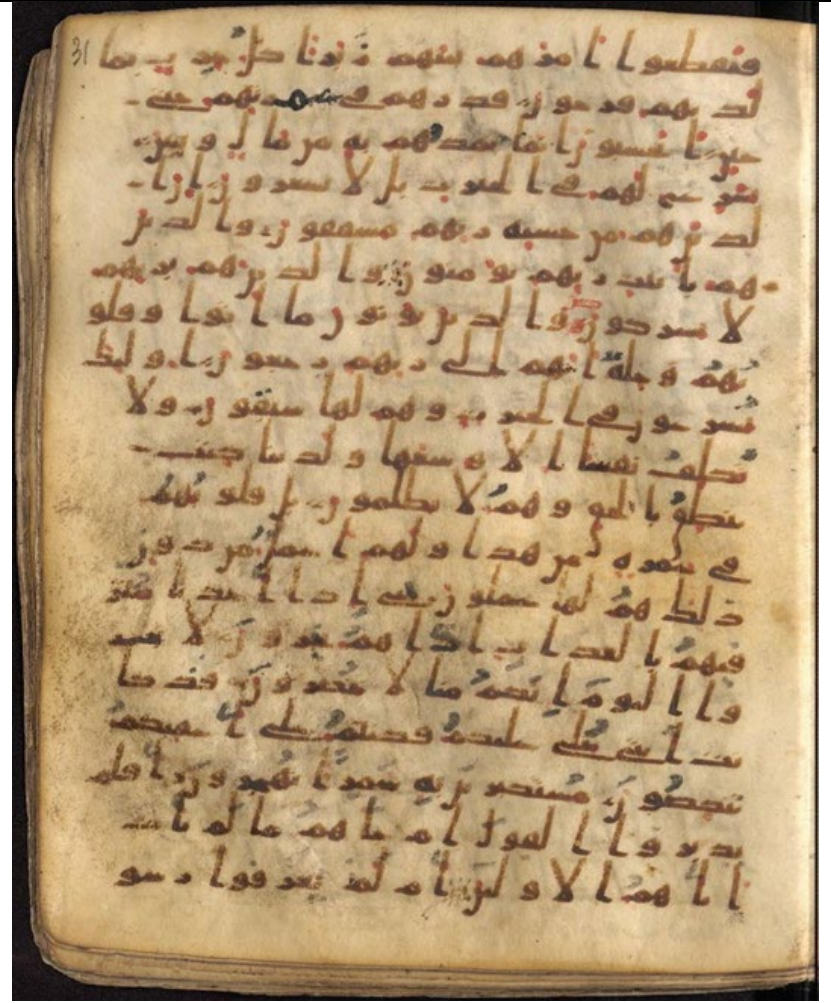 31
فتقطعوا امرهم بينهم زبرا كل حزب بما
لديهم فرحون فذرهم في غمرتهم حتى
حين ايحسبون انما نمدهم به من مال وبنين
نسرع لهم في الخيرت بل لا يشعرون ان ا
لذين هم من خشية ربهم مشفقون والذين
هم بايت ربهم يومنون والذين هم بربهم
لا يشركون والذين يوتون ما اتوا وقلو
بهم وجلة انهم الى ربهم رجعون اوليك
يسرعون في الخيرت وهم لها سبقون ولا
نكلف نفسا الا وسعها ولدينا كتب
ينطق بالحق وهم لا يظلمون بل قلوبهم
في غمرة من هذا ولهم اعمل من دون
ذلك هم لها عملون حتى اذا اخذنا متر
فيهم بالعذاب اذا هم يجرون لا تجر
وا اليوم انكم منا لا تنصرون قد كا
نت ايتي تتلى عليكم فكنتم على اعقبكم
تنكصون مستكبرين به سمرا تهجرون افلم
يدبروا القول ام جاهم ما لم يات
اباهم الاولين ام لم يعرفوا رسو